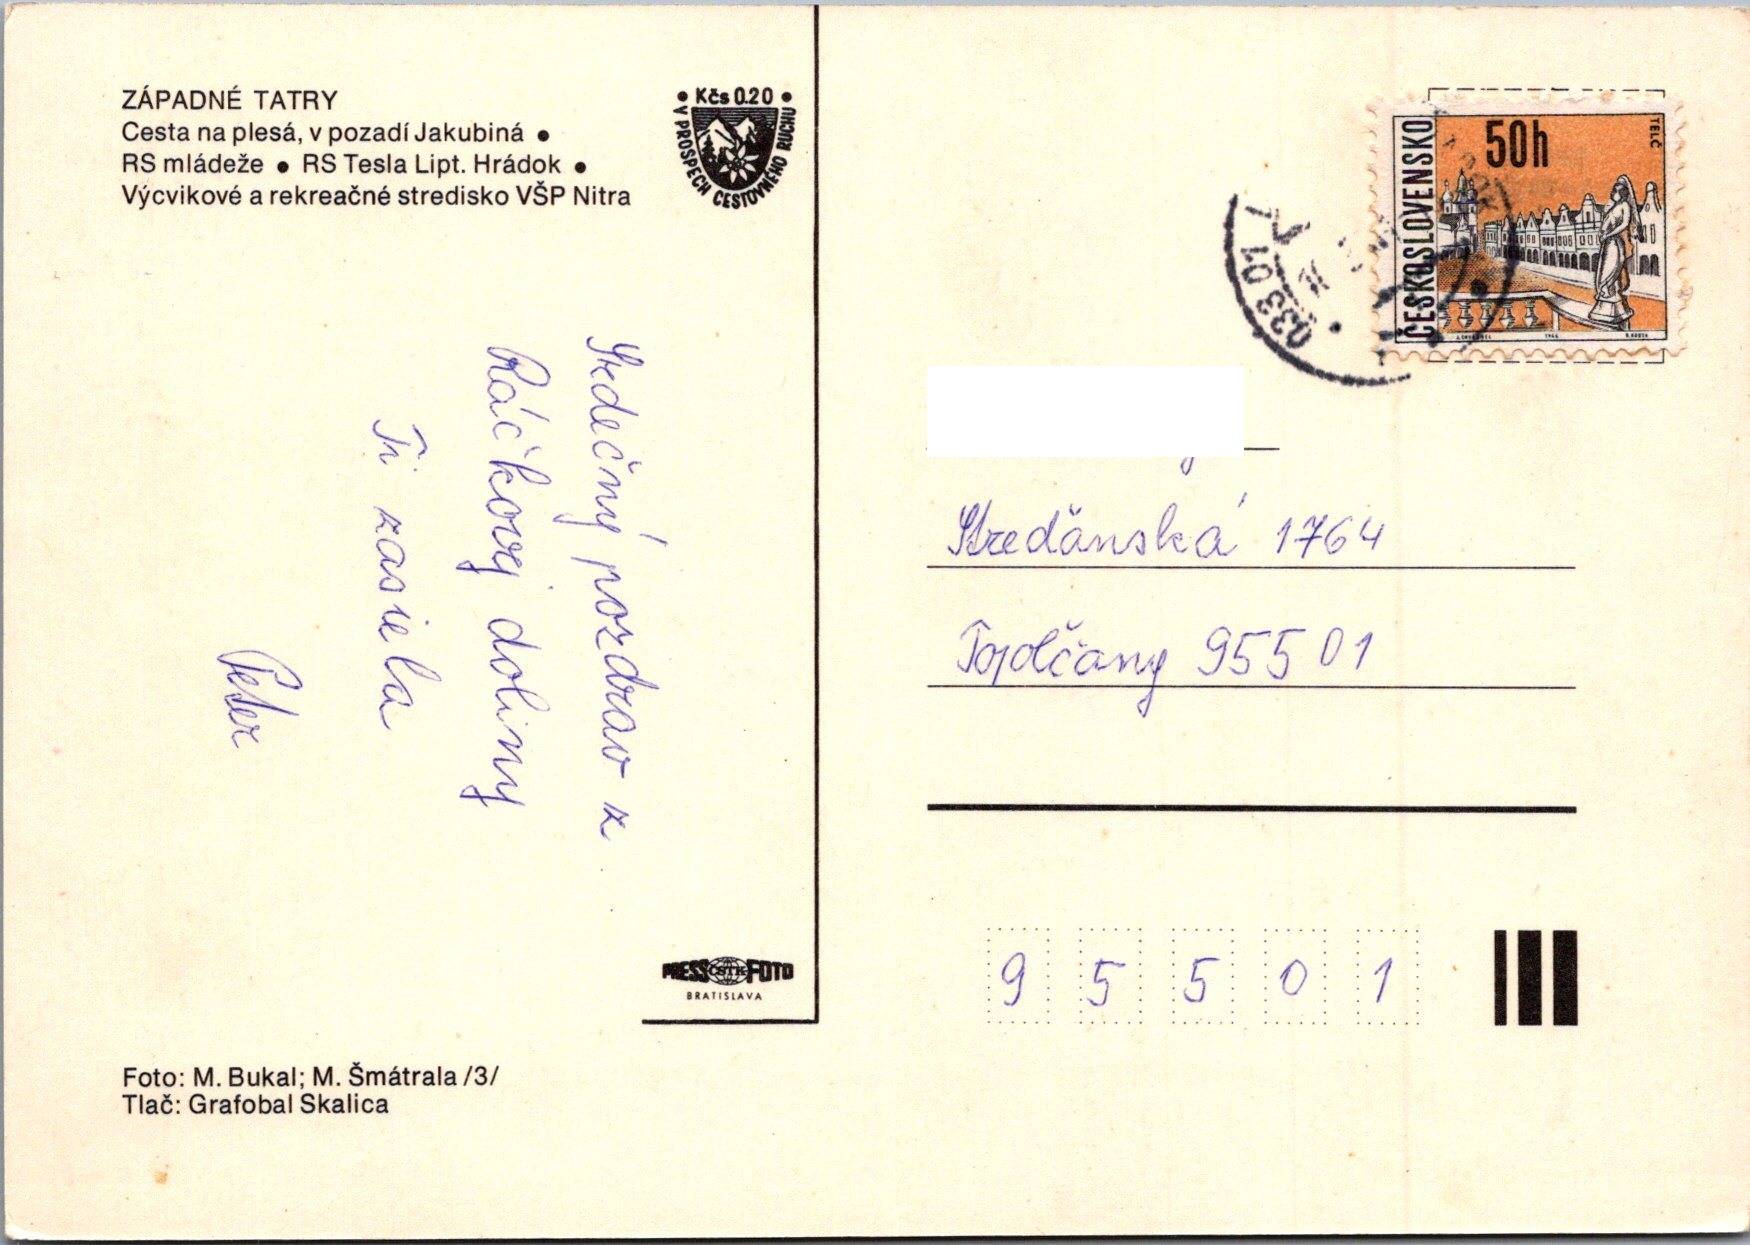 ZÁPADNÉ TATRY
Cesta na plesá, v pozadí Jakubiná ●
RS mládeže ● RS Tesla Lipt. Hrádok ●
Výcvikové a rekreačné stredisko VŠP Nitra
• Kčs 0.20 •
V PROSPECH CESTOVNÉHO RUCHU
Srdečný pozdrav z
Ráčkovej doliny
Ti zasiela
Peter
PRESS ČSTK FOTO
BRATISLAVA
Foto: M. Bukal; M. Šmátrala /3/
Tlač: Grafobal Skalica
ČESKOSLOVENSKO
50h
TELČ
1966
033 01
Streďanská 1764
Topoľčany 955 01
9 5 5 0 1